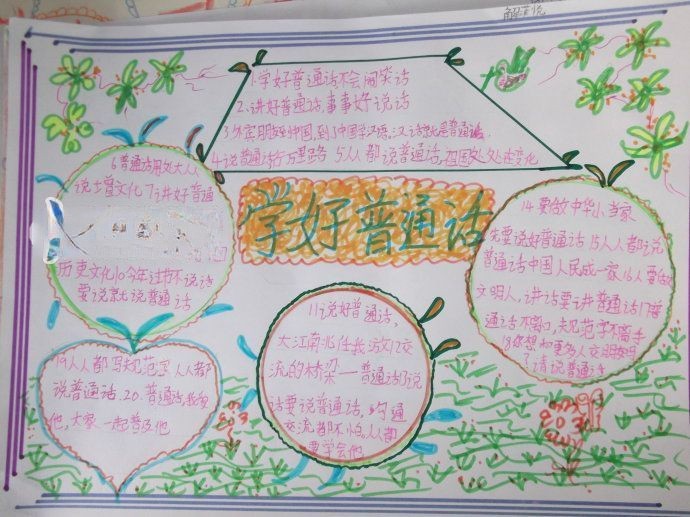 解
学好普通话
1.学好普通话不会闹笑话
2.讲好普通话,事事好说话
3.外宾朋友到中国,到了中国学汉语,汉语就是普通话
4.说普通话行万里路 5人人都说普通话,祖国处处在变化
6普通话用处大人人
说 文化7讲好普通
历史文化10今年过节不说话
要说就说普通话
11说好普通话,
大江南北任我游12交
流的桥梁一普通话13说
话要说普通话,沟通
交流都不怕,人人都
要学会他
14.要做中华小当家
先要说好普通话15人人都说
普通话中国人民成一家16人要做
文明人,讲话要讲普通话17普
通话不离口,
18你想和更多人交朋友吗
?请说普通话
19人人都写规范字,人人都
说普通话.20.普通话,我
他,大家一起普及他